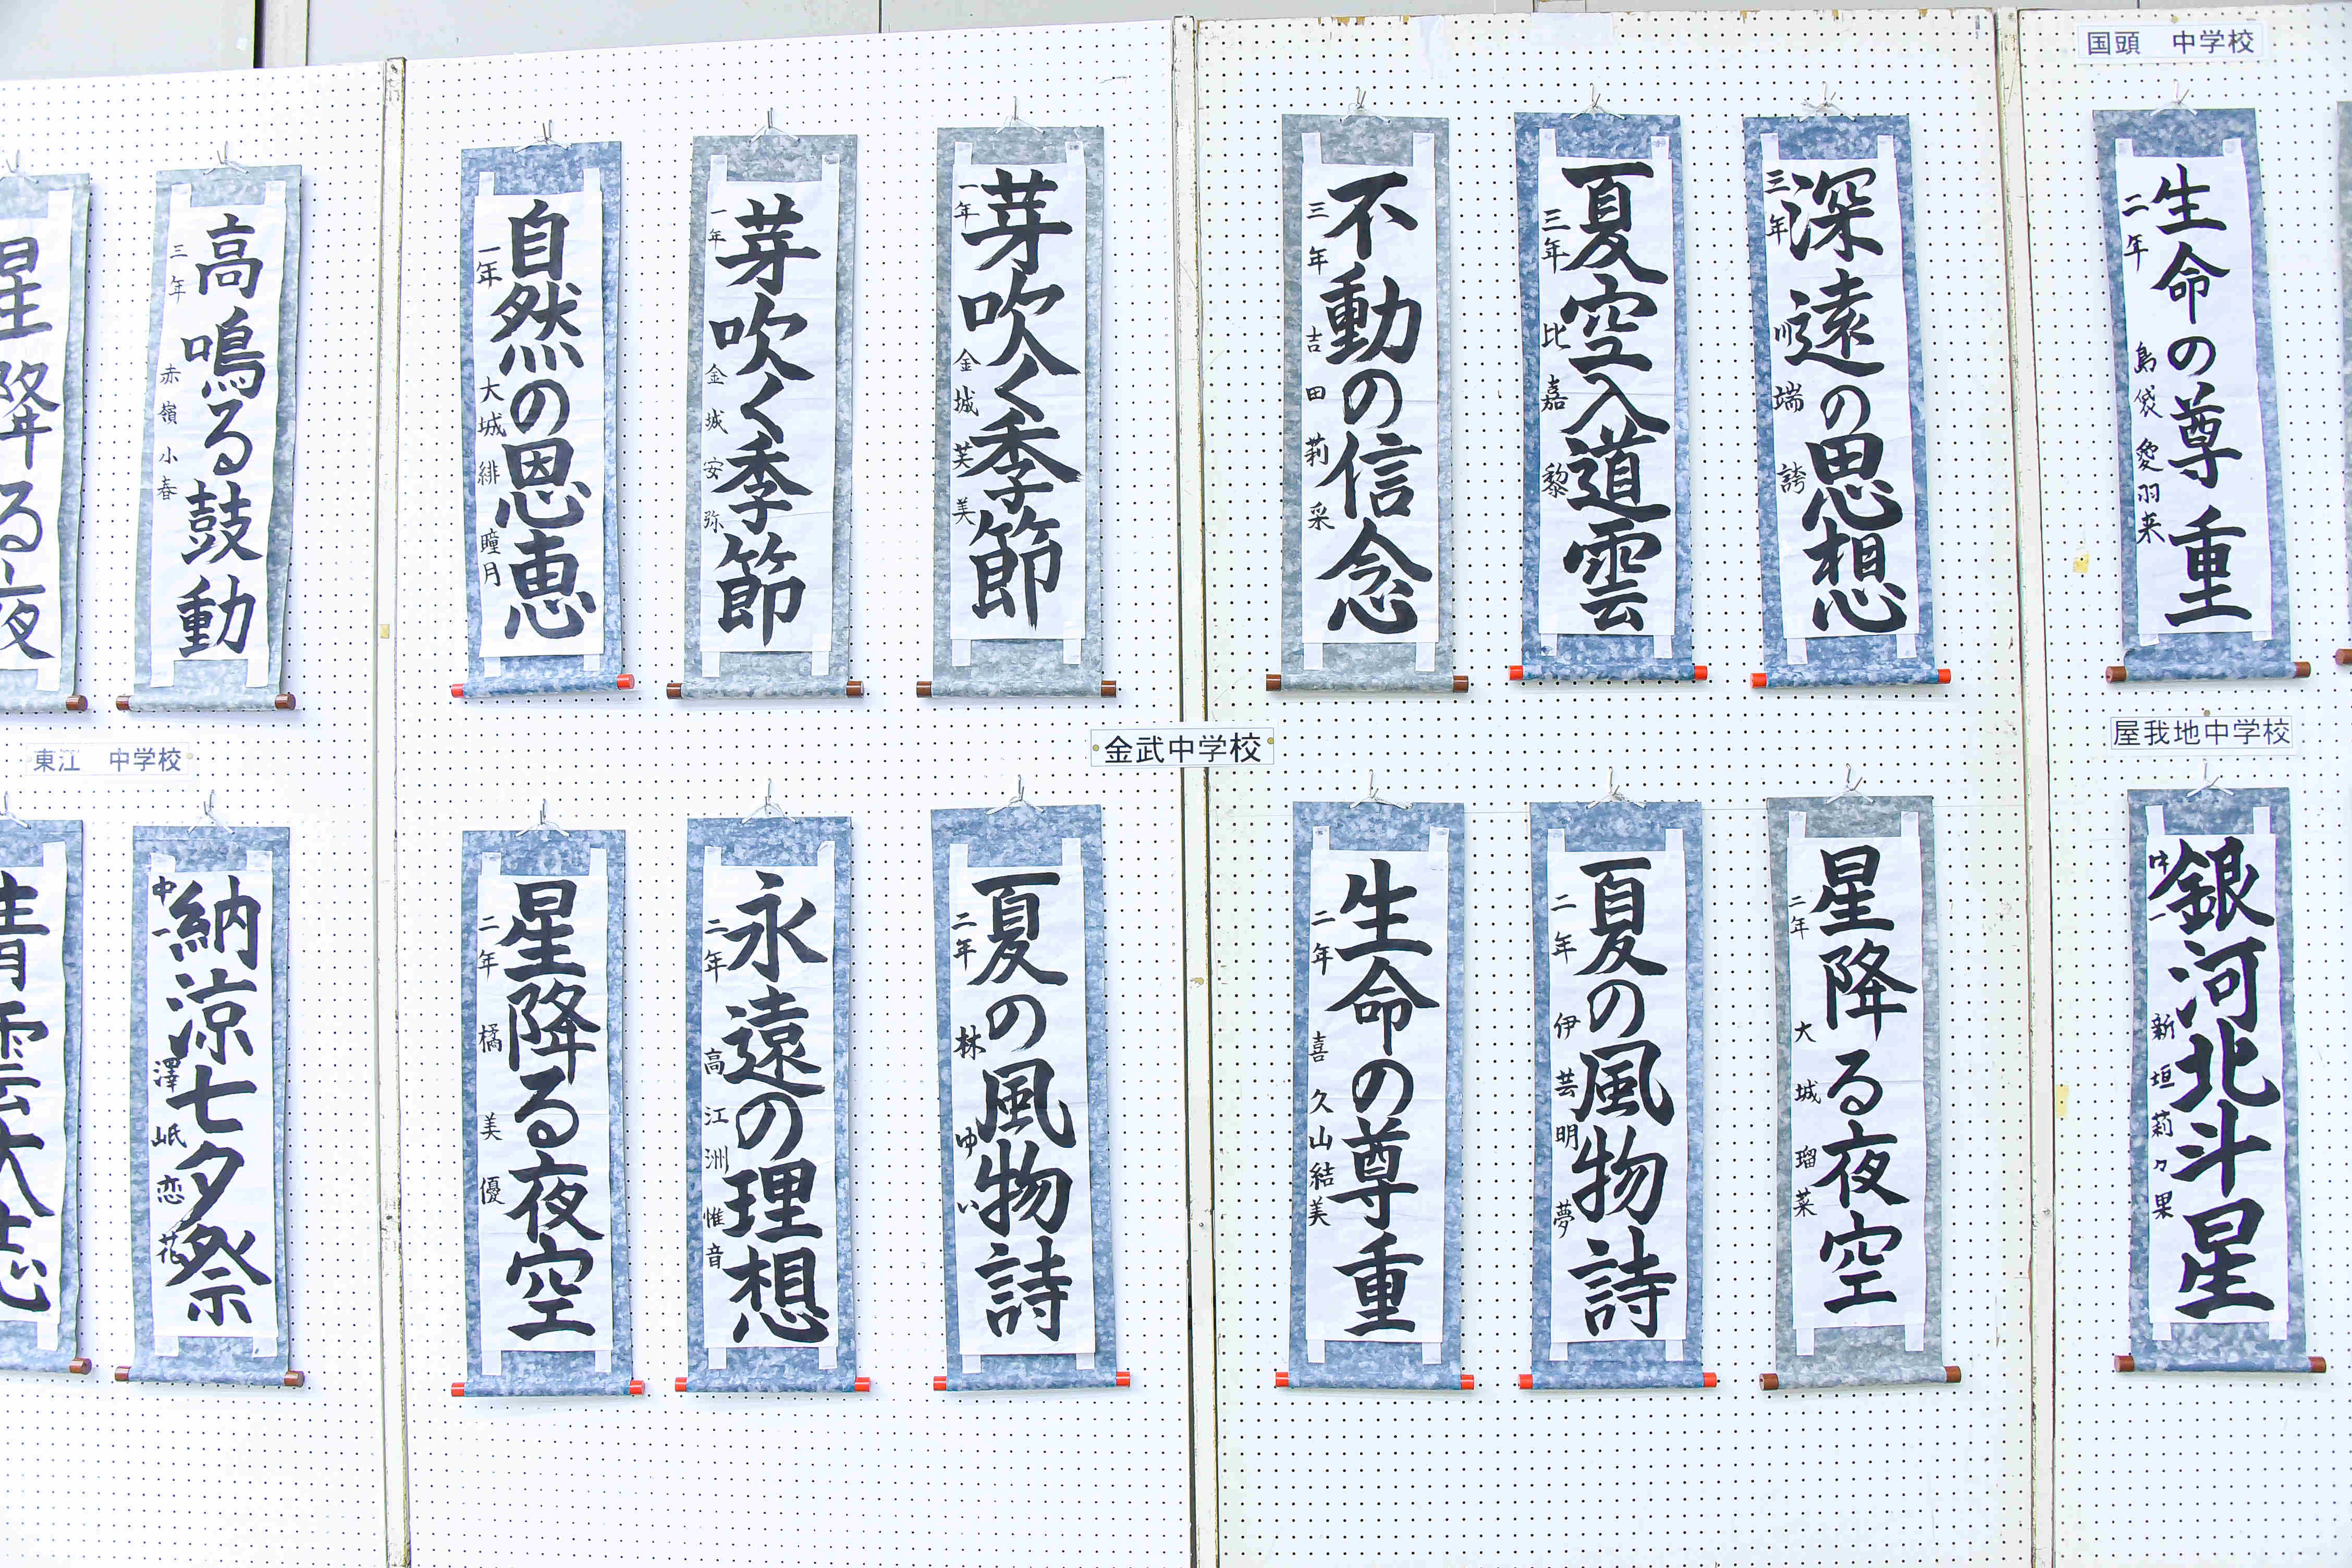 国頭 中学校
星降る夜
高鳴る鼓動
三年 赤嶺小春
自然の恩恵
一年 大城緋瞳月
芽吹く季節
一年 金城安弥
芽吹く季節
一年 金城芙美
不動の信念
三年 吉田莉采
夏空入道雲
三年 比嘉黎
深遠の思想
三年 順端誇
生命の尊重
二年 島袋愛羽来
東江 中学校
金武中学校
屋我地中学校
青雲大志
納涼七夕祭
中一 澤岻恋花
星降る夜空
二年 橘美優
永遠の理想
二年 高江洲惟音
夏の風物詩
二年 林ゆい
生命の尊重
二年 喜久山結美
夏の風物詩
二年 伊芸明夢
星降る夜空
二年 大城瑠菜
銀河北斗星
中一 新垣莉々果